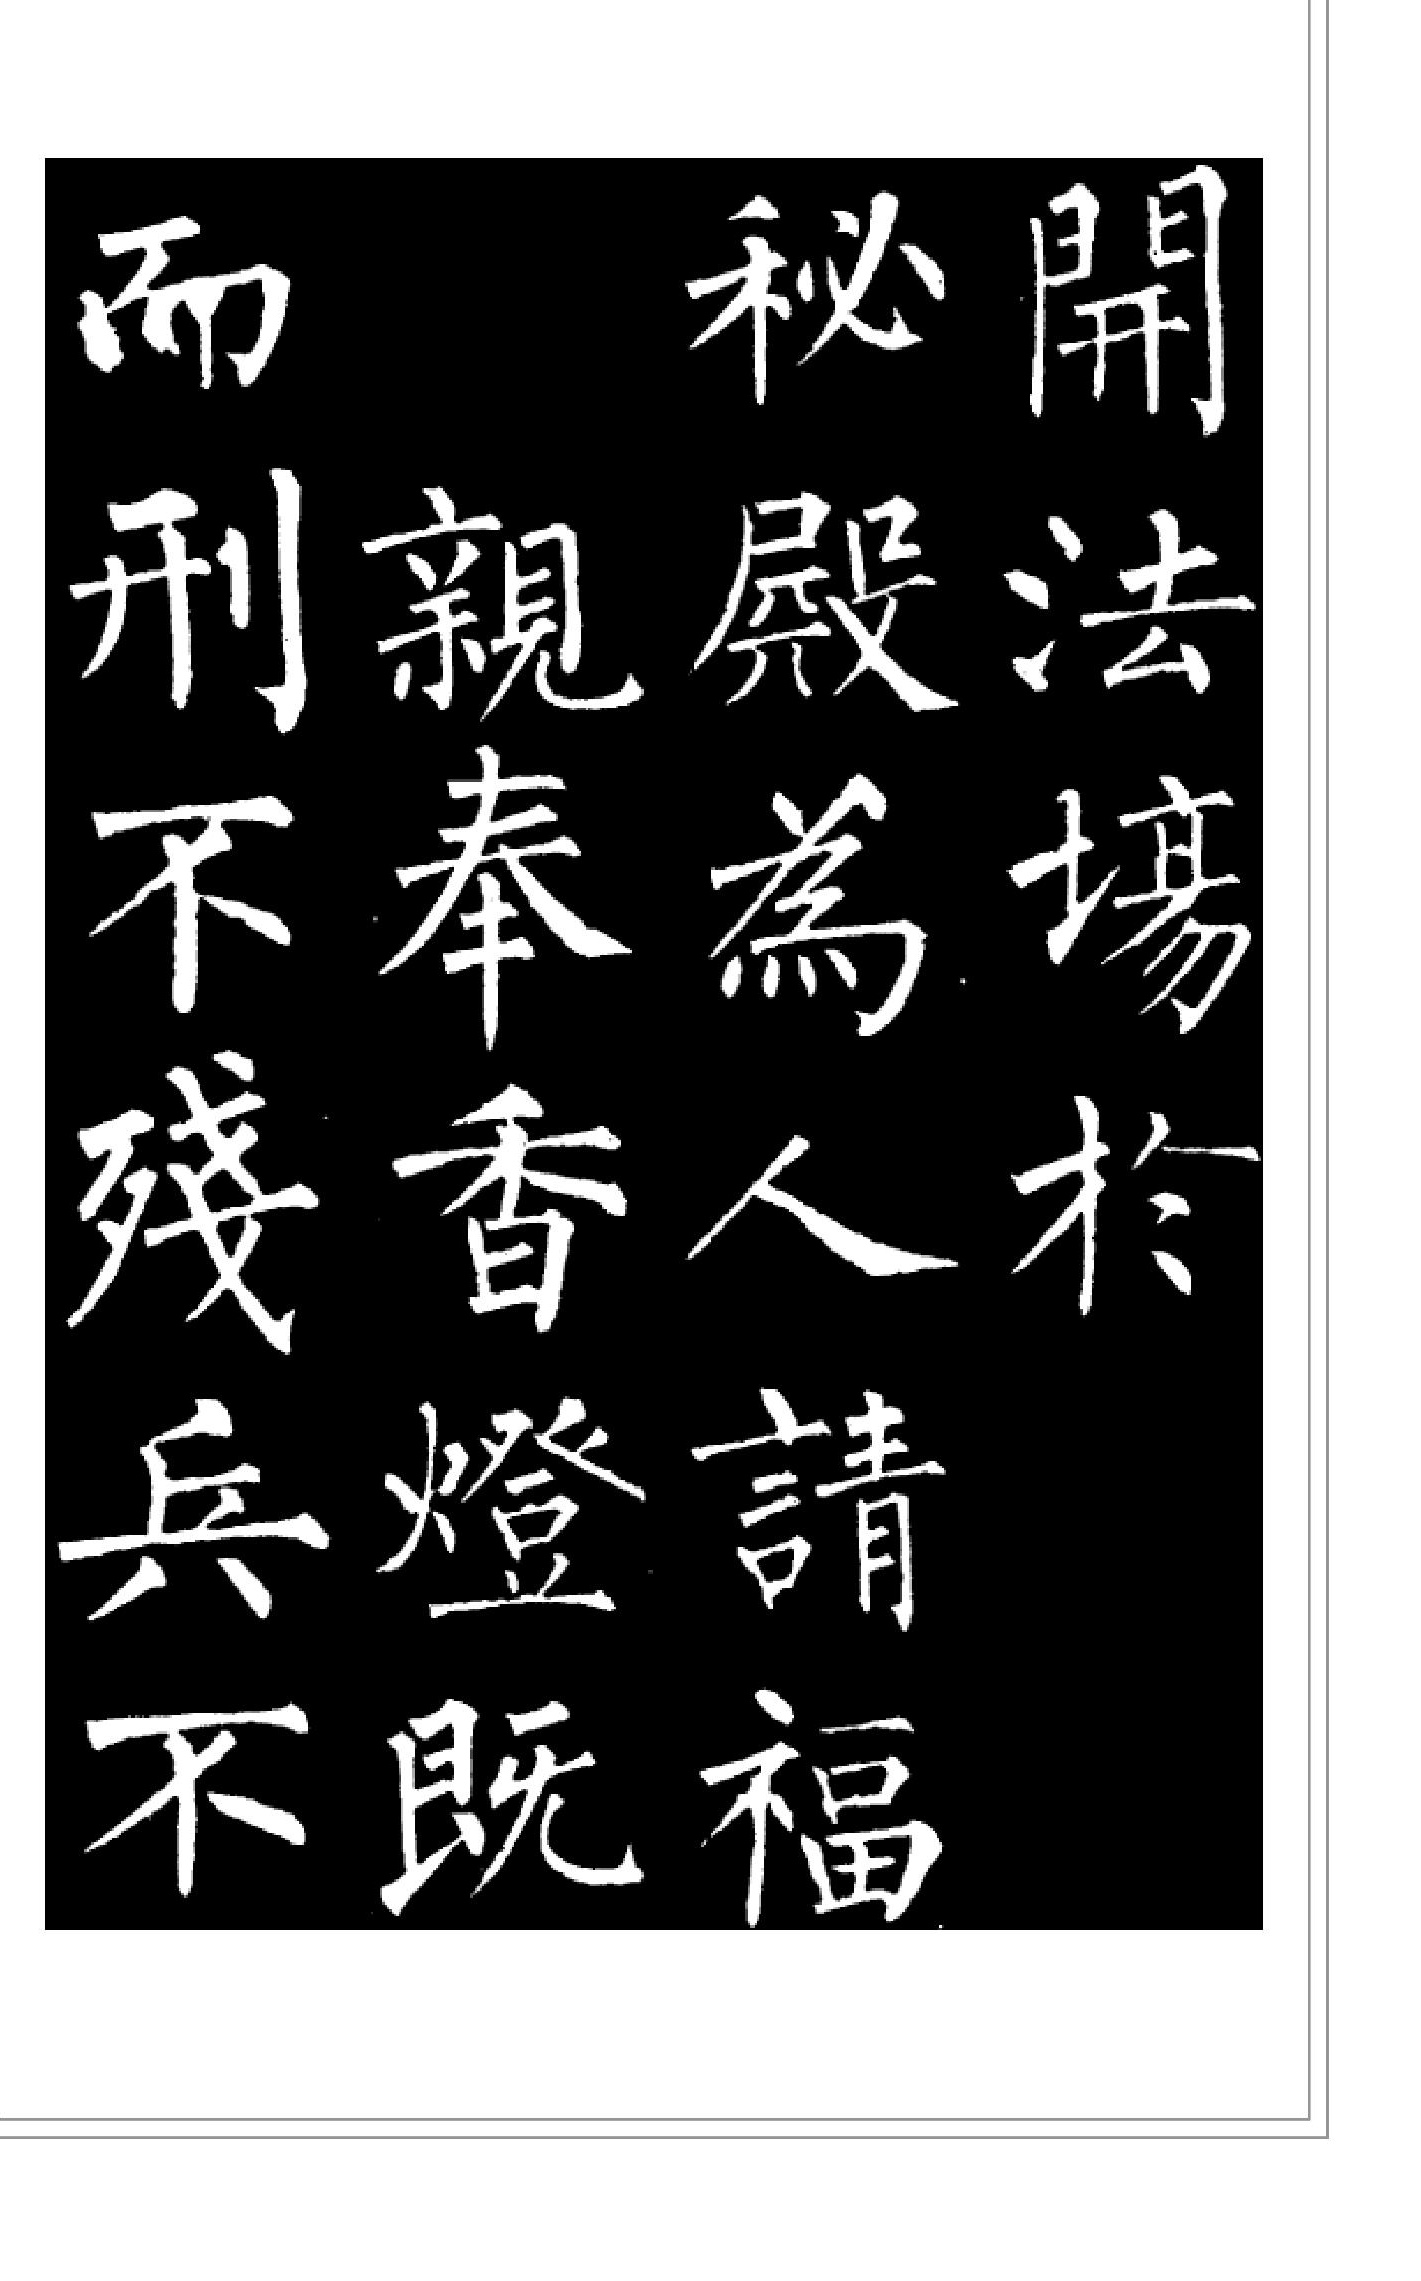 開法場於
秘殿為人請福
親奉香燈既
而刑不殘兵不